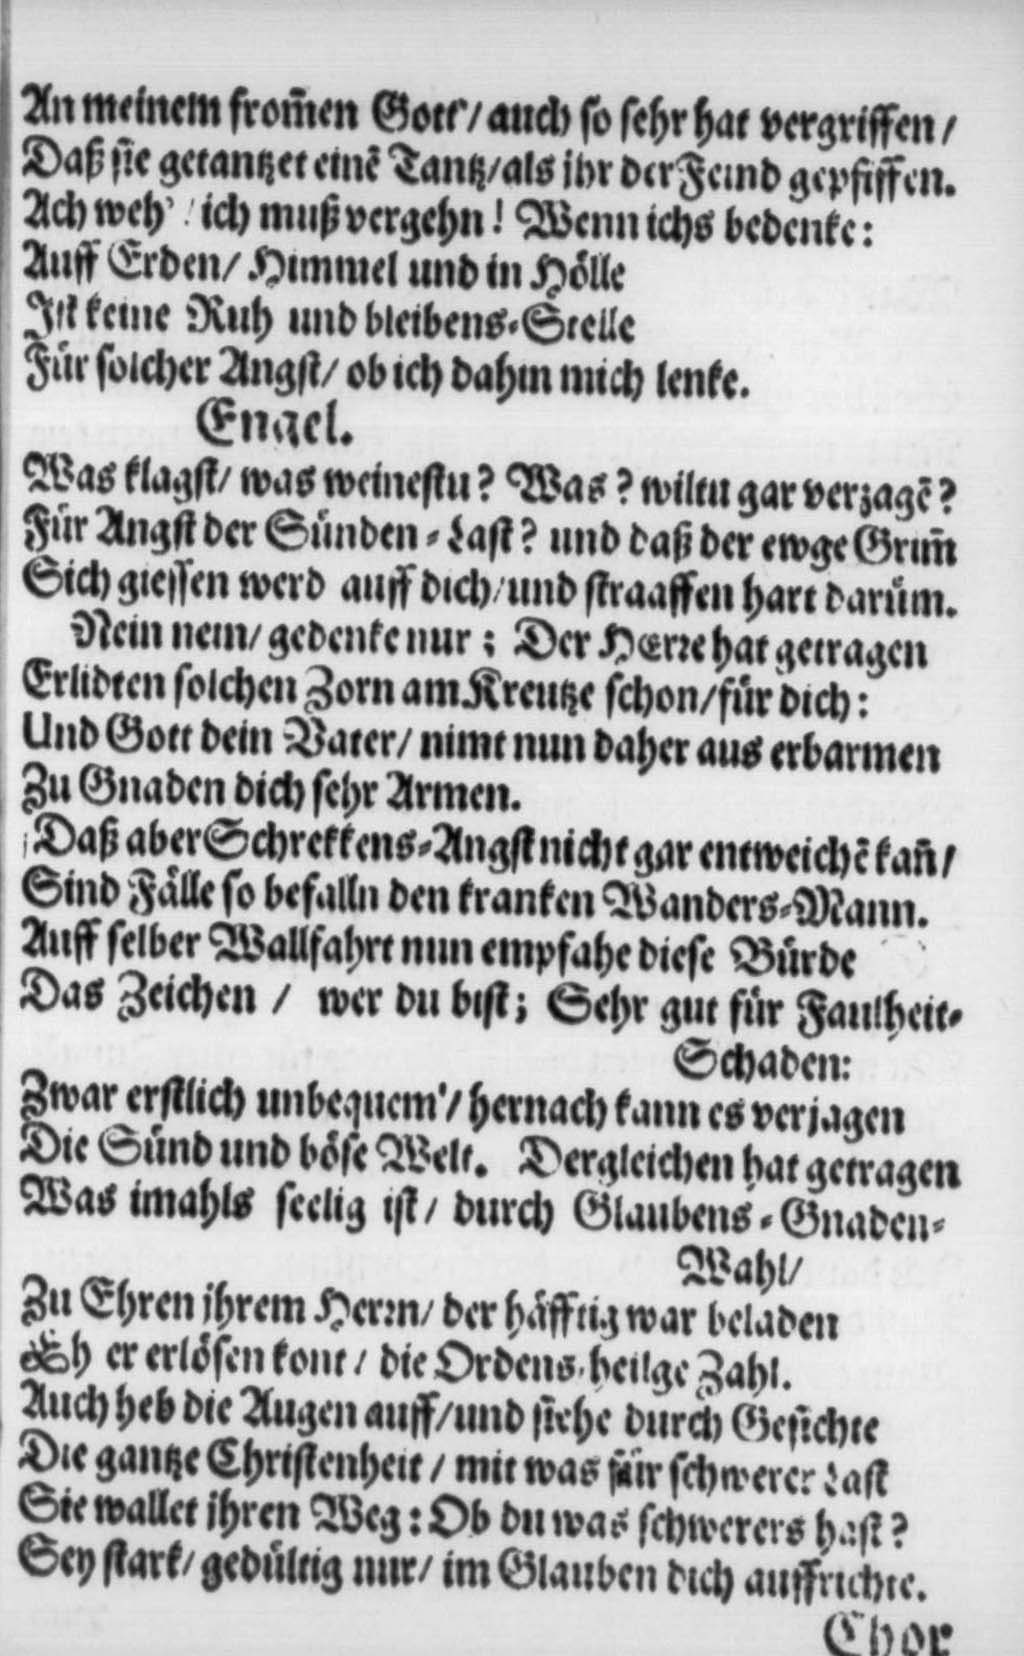 An meinem from̄en Gott'/ auch so sehr hat vergriffen/
Daß sie getantzet einē Tantz/als ihr der Feind gepfiffen.
Ach weh'! ich muß vergehn! Wenn ichs bedenke:
Auff Erden/ Himmel und in Hölle
Ist keine Ruh und bleibens-Stelle
Für solcher Angst/ ob ich dahin mich lenke.
Engel.
Was klagst/ was weinestu? Was? wiltu gar verzagē?
Für Angst der Sünden-Last? und daß der ewge Grim̄
Sich giessen werd auff dich/und straaffen hart darüm.
Nein nein/ gedenke nur; Der HErre hat getragen
Erlidten solchen Zorn am Kreutze schon/für dich:
Und Gott dein Vater/ nimt nun daher aus erbarmen
Zu Gnaden dich sehr Armen.
Daß aber Schrekkens-Angst nicht gar entweichē kan̄/
Sind Fälle so befalln den kranken Wanders-Mann.
Auff selber Wallfahrt nun empfahe diese Bürde
Das Zeichen / wer du bist; Sehr gut für Faulheit-
Schaden:
Zwar erstlich unbequem'/ hernach kann es verjagen
Die Sünd und böse Welt. Dergleichen hat getragen
Was imahls seelig ist/ durch Glaubens-Gnaden-
Wahl/
Zu Ehren ihrem Herrn/ der häfftig war beladen
Eh er erlösen kont/ die Ordens-heilge Zahl.
Auch heb die Augen auff/und siehe durch Gesichte
Die gantze Christenheit/ mit was für schwerer Last
Sie wallet ihren Weg: Ob du was schwerers hast?
Sey stark/ gedültig nur/ im Glauben dich auffrichte.
Chor